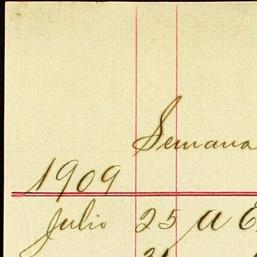 Semana
1909
Julio 25 A E
31